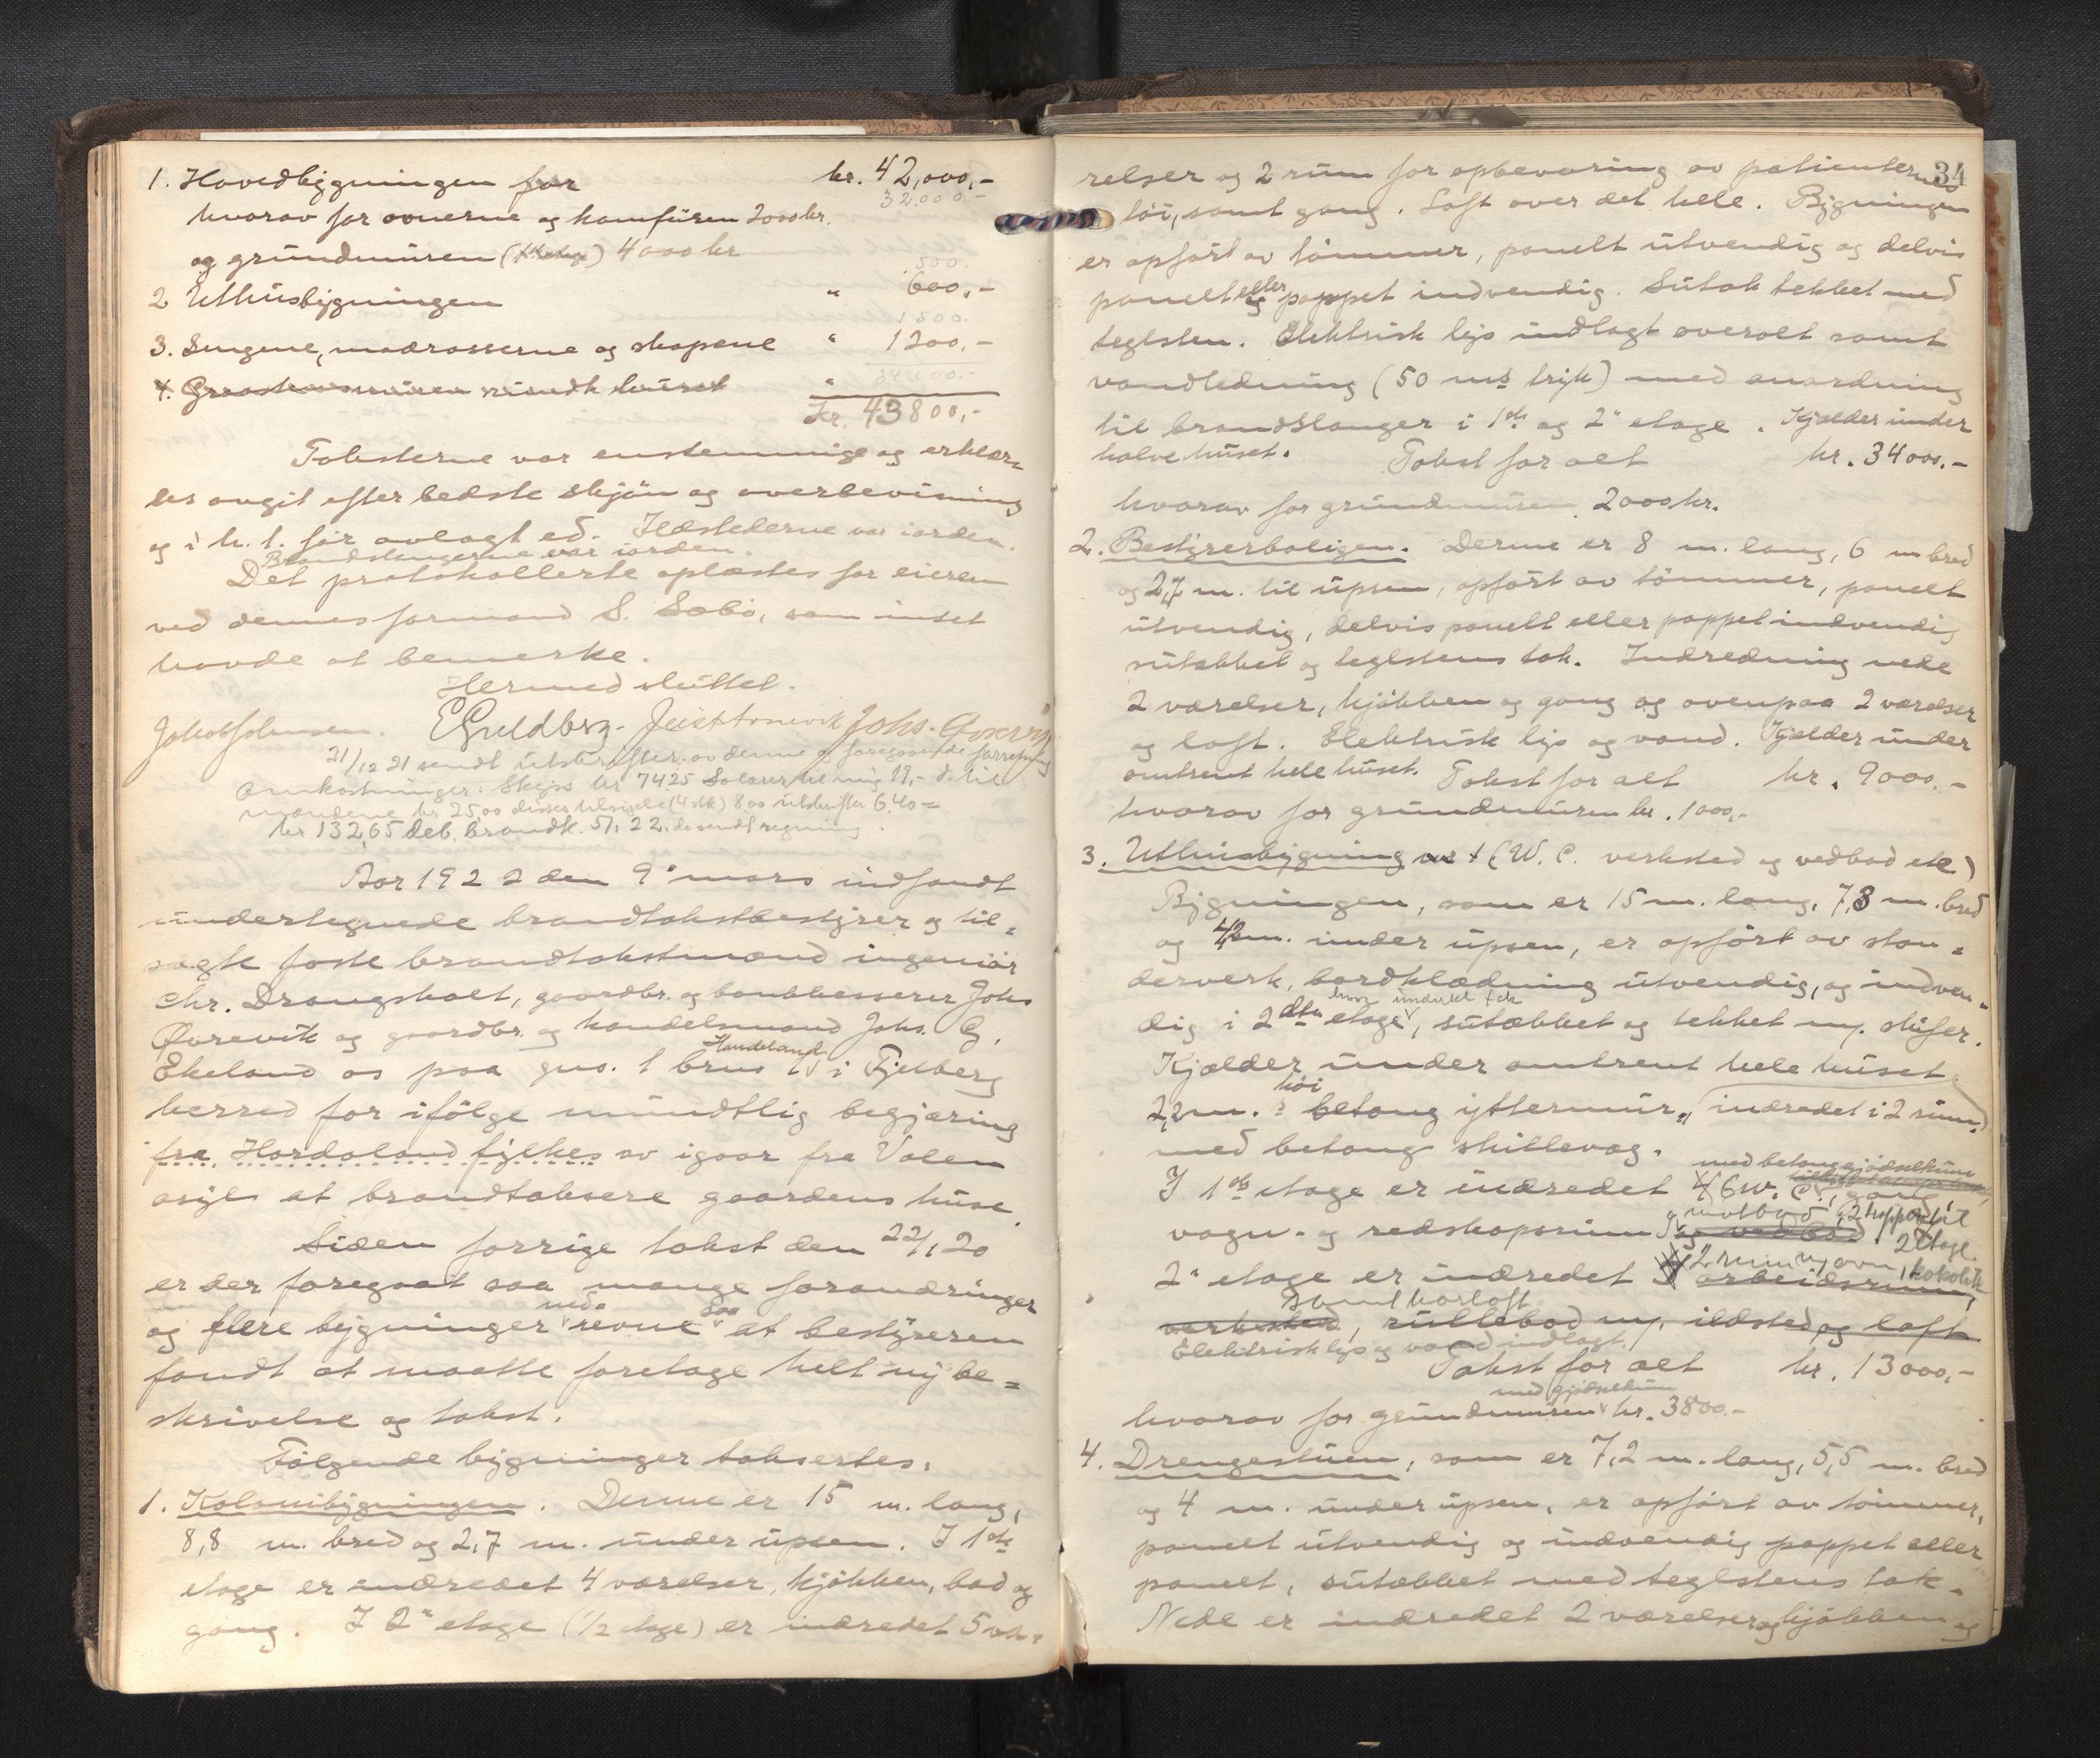 1. Hovedbygningen for kr. 42,000,-
32.000.-
hvorav for ovnerne og komfüren 2000 kr.
og grundmüren 4000 kr
500.
2 Uthüsbygningen " 600,-
1500.
3. Sengene, madrasserne og skapene " 1200,-
34.000.-
4. ründt hüset "
Kr. 43800,-
Taksterne var enstemmige og erklær=
tes avgit efter bedste skjön og overbevisning
og i h. t. för avlagt ed. Ildstederne var iorden.
Brandslangerne var iorden.
Det protokollerte oplæstes for eieren
ved dennes formand S. Sæbö, som intet
havde at bemerke.
Hermed slüttet.
Jakob Johnsen. E Guldberg. Johs. Øvrevik
21/12 21 sendt utskrifter av denne og foregaaende forretning
Omkostninger: Skyss kr 74.25 Salærer til mig 19,- d. til
mændene kr 25,00 disses tilsigelse (4 stk) 8 00 utskrifter 6.40 =
kr 132,65 deb. brandk. 5/1 22. sendt regning.
Aar 1922 den 9. mars indfandt
undertegnede brandtakstbestyrer og til=
sagte faste brandtakstmænd ingeniör
Chr. Drangsholt, gaardbr. og bankkasserer Johs
Øvrevik og gaardbr. og handelsmand Johs. G.
Handeland
Ekeland os paa gno. 1 brno 1 i Fjelberg
herred for ifölge mündtlig begjæring
fra Hordaland fylkes av igaar fra Valen
asyl at brandtaksere gaardens hüse.
Siden forrige takst den 22/1 20
er der foregaat saa mange forandringer
og flere bygninger nedrevne saa at bestyreren
fandt at maatte foretage helt ny be=
skrivelse og takst.
Fölgende bygninger taksertes:
1. Kolonibygningen. Denne er 15 m. lang,
8,8 m. bred og 2,7 m. ünder üpsen. I 1ste
etage er indredet 4 værelser, kjökken, bad og
gang. I 2" etage (1/2 etage) er indredet 5 væ-
34
relser og 2 rüm for opbevaring av patienternes
töi, samt gang. Loft over det hele. Bygningen
er opfört av tömmer, panelt ütvendig og delvis
panelt eller pappet indvendig. Sütak tekket med
teglsten. Elektrisk lys indlagt overalt samt
vandledning (50 m's tryk) med anordning
til brandslanger i 1ste og 2" etage. Kjælder ünder
halve hüset. Takst for alt kr. 34000.-
hvorav for gründmüren 2000 kr.
2. Bestyrerboligen. Denne er 8 m. lang, 6 m bred
og 2,7 m. til üpsen, opfört av tömmer, panelt
ütvendig, delvis panelt eller pappet indvendig
sütækket og teglstens tak. Indredning nede
2 værelser, kjökken og gang og ovenpaa 2 værelser
og loft. Elektrisk lys og vand. Kjælder ünder
omtrent hele hüset. Takst for alt kr. 9000.-
hvorav for gründmüren kr. 1000,-
3. Uthüsbygning nr 1 (W. C. verksted og vedbod etc)
Bygningen, som er 15 m. lang, 7,8 m. bred
og 4,2 m. ünder üpsen, er opfört av stan=
derverk, bordklædning ütvendig, og indven=
dig i 2den etage, sütækket og tekket m. skifer.
Kjælder ünder omtrent hele hüset
2,2 m. höi betong yttermür, indredet i 2 rüm
med betong skillevæg.
med betong gjödselküm
I 1ste etage er indredet 6 W. C., gang,
vogn- og redskapsrüm og matbod, 2 trapper til 2 etage.
og vedbod
2" etage er indredet 2 rüm m. ovn, kakelit
arbeidsrüm,
samt horloft
verksted, rüllebod m. ildsted og loft
Elektrisk lys og vand indlagt.
Takst for alt kr. 13000,-
med gjödselküm
hvorav for gründmüren kr. 3800.-
4. Drengestüen, som er 7,2 m. lang, 5,5 m. bred
og 4 m. ünder üpsen, er opfört av tömmer,
panelt ütvendig og indvendig pappet eller
panelt, sütækket med teglstens tak.
Nede er indredet 2 værelser og kjökken og